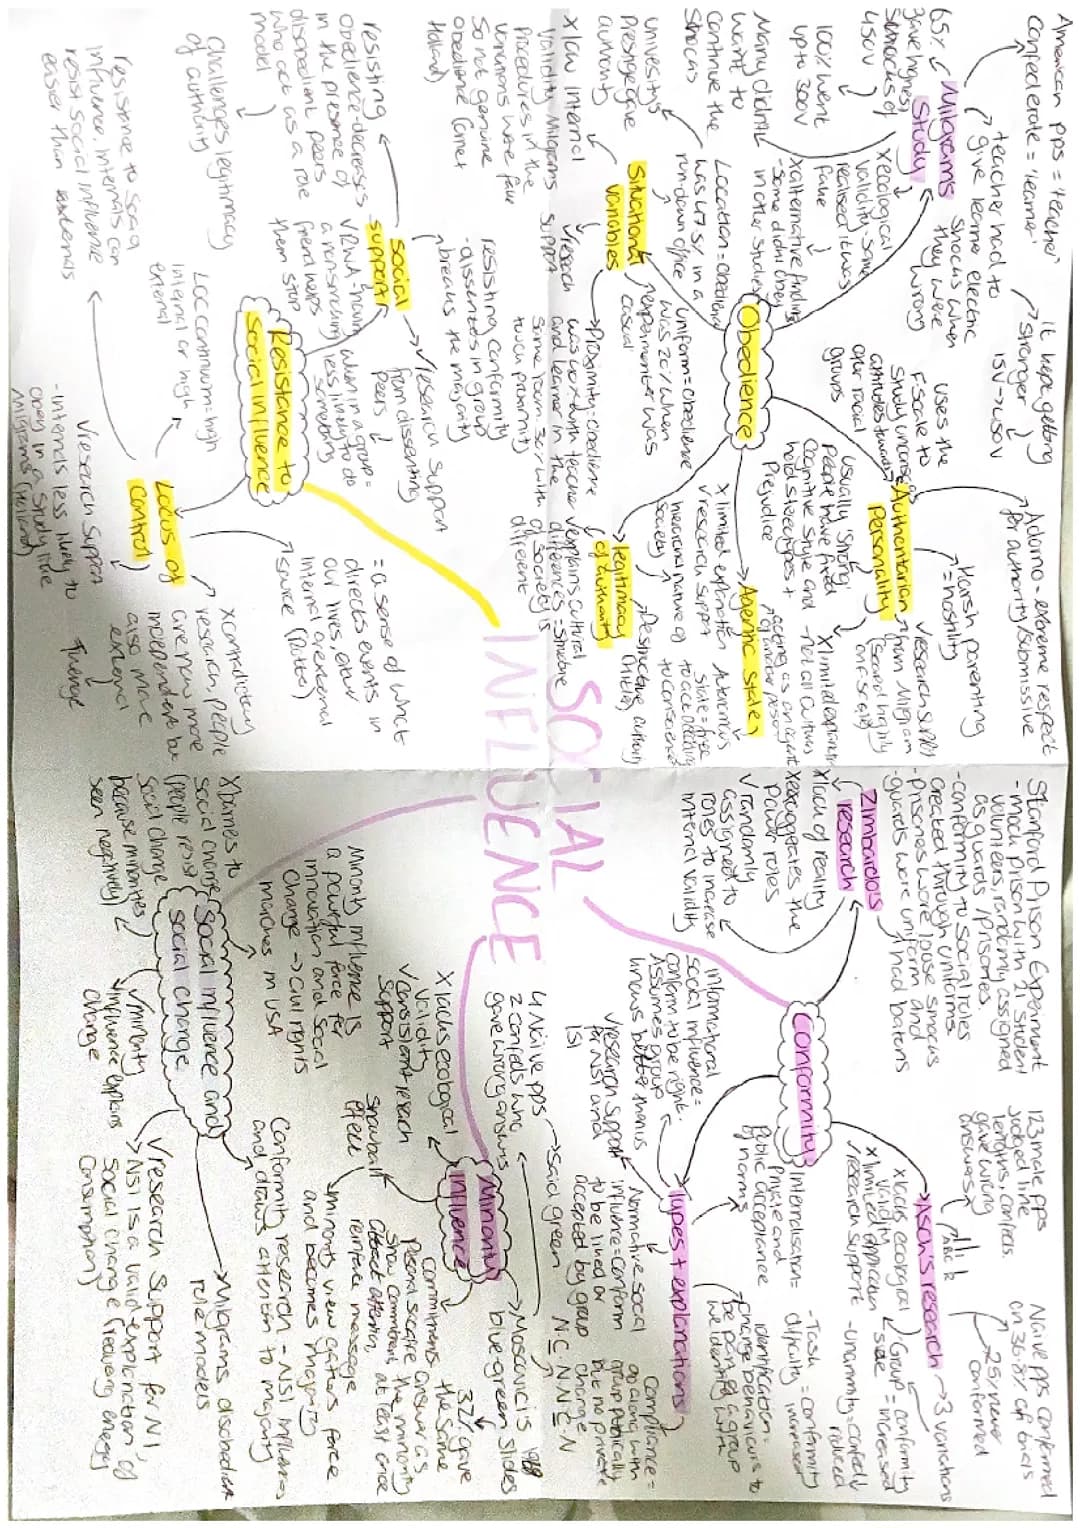 SOCIAL
INFLUENCE
Obedience
Milgrams
Study
American pps = 'teacher'
Confederate = 'learner'
teacher had to
give learner electric
shocks when
they were
wrong
it kept getting
stronger
15V → 450V
65%
gave highest
shocks of
450V
100% went
up to 300V
Many didn't
want to
continue the
shocks
x ecological
validity some
realised it was
fake
x alternative findings
- some didn't obey
in other studies
Situational
variables
Location = obedience
was 47.5% in a
run down office
University's
prestige gave
authority
Uniform = obedience
was 20% when
experimenter was
casual
Proximity = obedience
was worse with teacher
and learner in the
same room 30% with
touch proximity
x low internal
validity Milgrams
Procedures in the
variations were fake
so not genuine
obedience (Orne +
Holland)
✓ research
support
Authoritarian
Personality
Adorno = extreme respect
for authority/submissive
Harsh parenting
= hostility
uses the
F-scale to
study unconscious
attitudes towards
other racial
groups
usually 'strong'
people have fixed
cognitive style and
hold stereotypes +
Prejudice
✓ research support
from Milgram
(scored highly
on F scale)
x limited explanation
- not all cultures
Agentic State
acting as an agent
of another person
Autonomous
State = free
to act according
to conscience
x limited explanation
✓ research support
legitimacy
of authority
hierarchical nature of
society
Destructive authority
(Hitler)
✓ explains cultural
differences = structure
of society is
different
Resistance to
social influence
Social
support
resisting
obedience - decreases
in the presence of
disobedient peers
who act as a role
model
challenges legitimacy
of authority
resisting conformity
- dissenters in group
breaks the majority
✓ research support
from dissenting
peers
when in a group =
less likely to do
something
✓ RWA, having
a nonsmoking
friend helps
them stop
Locus of
Control
= a sense of what
directs events in
our lives, either
internal or external
source (Rotter)
LOC continuum = high
internal or high
external
resistance to social
influence. Internals can
resist social influence
easier than externals
✓ research support
- internals less likely to
obey in a study like
Milgrams (Holland)
x contradictory
research, people
are now more
independent but
also more
external
Twenge
Conformity
Zimbardo's
research
Stanford Prison Experiment
- mock prison with 21 student
volunteers, randomly assigned
as guards/prisoners.
- conformity to social roles
created through uniforms
- prisoners wore loose smocks
- guards wore uniform and
had batons
x lack of reality
x exaggerates the
power roles
✓ randomly
assigned to
roles to increase
internal validity
Asch's research
123 male pps
judged line
lengths, confeds.
gave wrong
answers
A B C
Naive pps conformed
on 36.8% of trials
25% never
conformed
3 variations
- Group = conformity
size increased
- unanimity = conformity
reduced
- Task = conformity
difficulty increased
x lacks ecological
validity
x limited application
✓ research support
Types + explanations
Internalisation =
Private and
public acceptance
of norms
identification =
change behaviours to
be part of a group
we identify with
Compliance =
go along with
group publically
but no private
change
informational
social influence =
conform to be right.
Assumes group
knows better than us
Normative social
influence = conform
to be liked or
accepted by group
✓ research support
for NSI and
ISI
Minority
influence
Moscovici's 1969
blue green slides
4 Naive pps
2 confeds who
gave wrong answers
said green
32% gave
the same
answer as
the minority
at least once
Commitment =
Personal sacrifice
show commitment,
attract attention,
reinforce message
snowball
effect
minority view gathers force
and becomes majority
x lacks ecological
validity
✓ consistent research
support
Social influence and
social change
Minority influence is
a powerful force for
innovation and social
change → civil rights
marches in USA
Conformity research - NSI influences
and draws attention to majority
Milgrams disobedient
role models
✓ research support for NI,
NSI is a valid explanation of
social change (reducing energy
consumption)
✓ minority
influence explains
change
x barriers to
social change
(people resist
social change
because minorities
seen negatively)